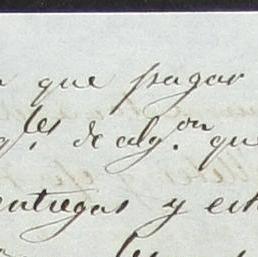 que pagar
q.les de alg.on que
entregas y est